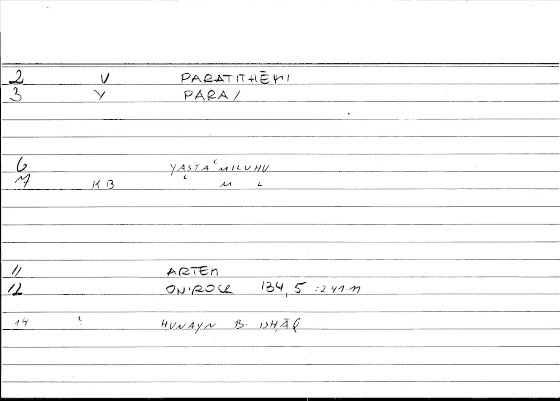 2 V PARATITHĒMI
3 Y PARA/
6 YASTAʿMILUHU
7 KB ʿ M L
11 ARTEM
12 ONIROCR 134,5 =241.11
14 HUNAYN B. ISḤĀQ